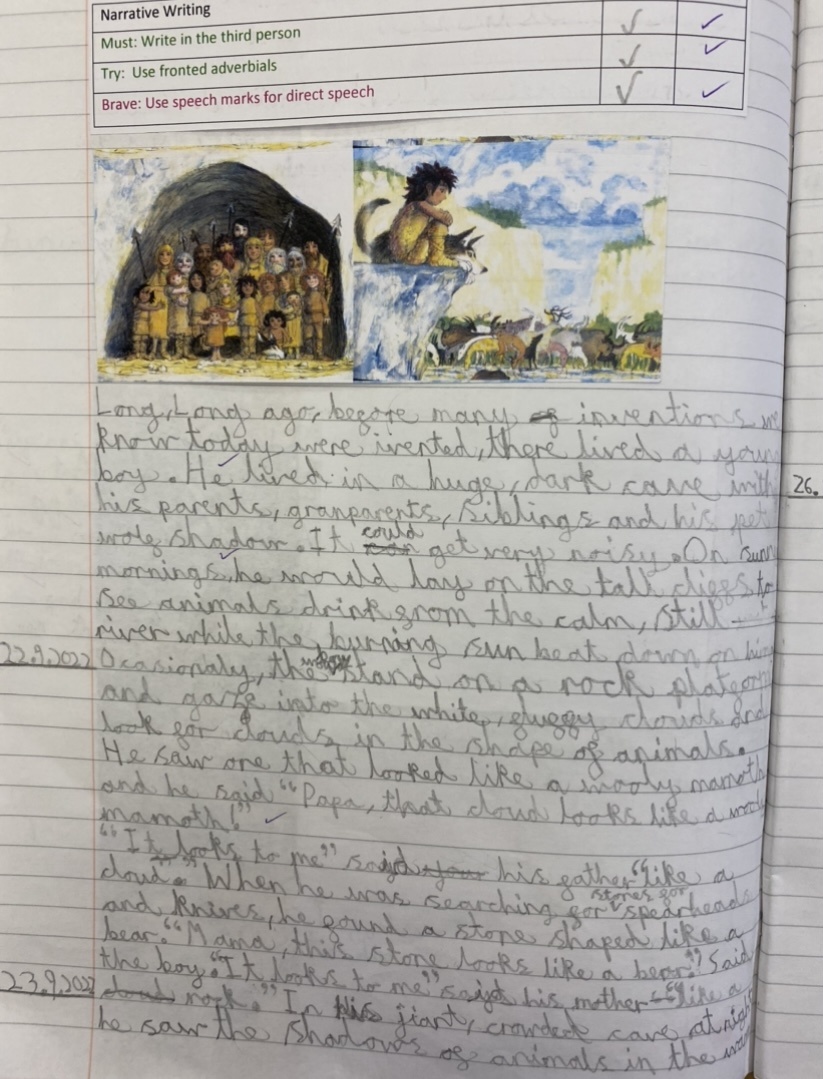 Narrative Writing
Must: Write in the third person
Try: Use fronted adverbials
Brave: Use speech marks for direct speech
Long, Long ago, before many inventions we
know today were ivented, there lived a youn
boy. He lived in a huge, dark cave with
26.
his parents, granparents, Siblings and his pet
wolf shadow. It could get very noisy. On sunn
mornings, he would lay on the tall cliffs to
see animals drink from the calm, still
river while the burning sun beat down on him
22.9.2022 Ocasionaly, the stand on a rock platform
and gaze into the white, fluffy clouds and
look for clouds in the shape of animals.
He saw one that looked like a wooly mamoth
and he said "Papa, that cloud looks like a wooly
mamoth!"
"It looks to me" said his father "like a
cloud." When he was searching for stones for spearheads
and knives, he found a stone shaped like a
bear. "Mama, this stone looks like a bear!" Said
the boy. "It looks to me" said his mother "like a
23.9.2022 rock." In his jiant, crowded cave at night
he saw the shadows of animals in the